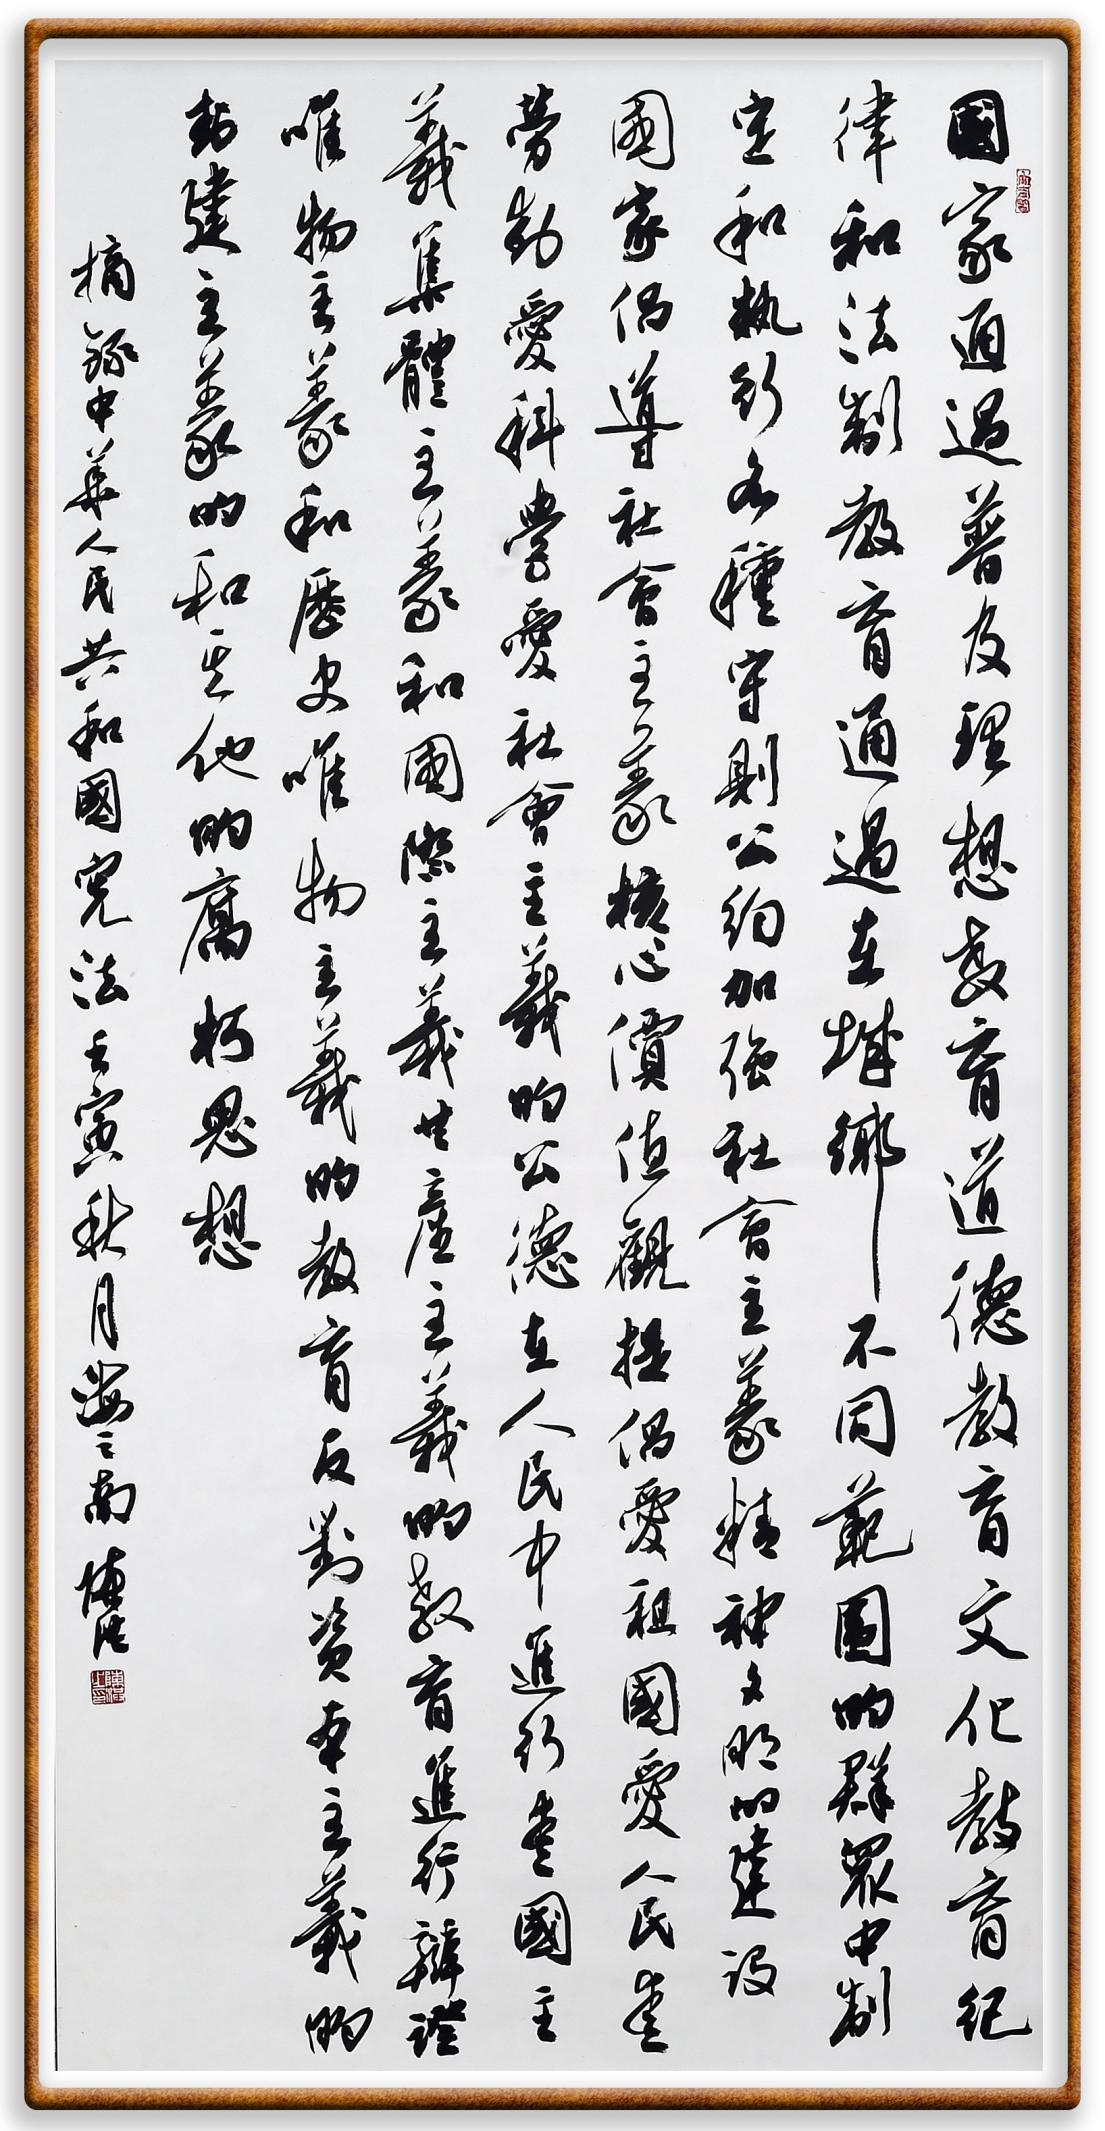 國家通過普及理想教育道德教育文化教育紀
律和法制教育通過在城鄉不同範圍的群眾中制
定和執行各種守則公約加強社會主義精神文明的建設
國家倡導社會主義核心價值觀提倡愛祖國愛人民愛
勞動愛科學愛社會主義的公德在人民中進行愛國主
義集體主義和國際主義共產主義的教育進行辯證
唯物主義和歷史唯物主義的教育反對資本主義的
封建主義的和其他的腐朽思想
摘錄中華人民共和國憲法壬寅秋月海之南陳浩